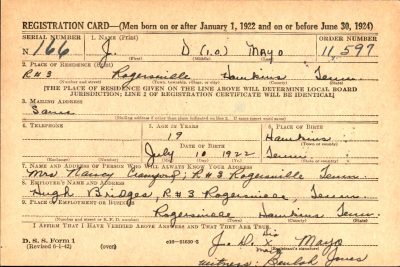 REGISTRATION CARD—(Men born on or after January 1, 1922 and on or before June 30, 1924)
SERIAL NUMBER 1. NAME (Print) ORDER NUMBER
N 166 J. D (I.O.) Mayo 11,597
(First) (Middle) (Last)
2. PLACE OF RESIDENCE (Print)
R#3 Rogersville Hawkins Tenn
(Number and street) (Town, township, village, or city) (County) (State)
[THE PLACE OF RESIDENCE GIVEN ON THE LINE ABOVE WILL DETERMINE LOCAL BOARD
JURISDICTION; LINE 2 OF REGISTRATION CERTIFICATE WILL BE IDENTICAL]
3. MAILING ADDRESS
Same
(Mailing address if other than place indicated on line 2. If same insert word same)
4. TELEPHONE 5. AGE IN YEARS 6. PLACE OF BIRTH
19 Hawkins
DATE OF BIRTH (Town or county)
July 10 1922 Tenn
(Exchange) (Number) (Mo.) (Day) (Yr.) (State or country)
7. NAME AND ADDRESS OF PERSON WHO WILL ALWAYS KNOW YOUR ADDRESS
Mrs Nancy Crawford, R#3 Rogersville Tenn
8. EMPLOYER'S NAME AND ADDRESS
Hugh Bridges, R#3 Rogersville, Tenn
9. PLACE OF EMPLOYMENT OR BUSINESS
Rogersville Hawkins Tenn
(Number and street or R. F. D. number) (Town) (County) (State)
I AFFIRM THAT I HAVE VERIFIED ABOVE ANSWERS AND THAT THEY ARE TRUE.
D. S. S. Form 1 his
(Revised 6-1-42) (over) c16—21630-2 J. D. X Mayo
mark (Registrant's signature)
witness: Beulah Jones